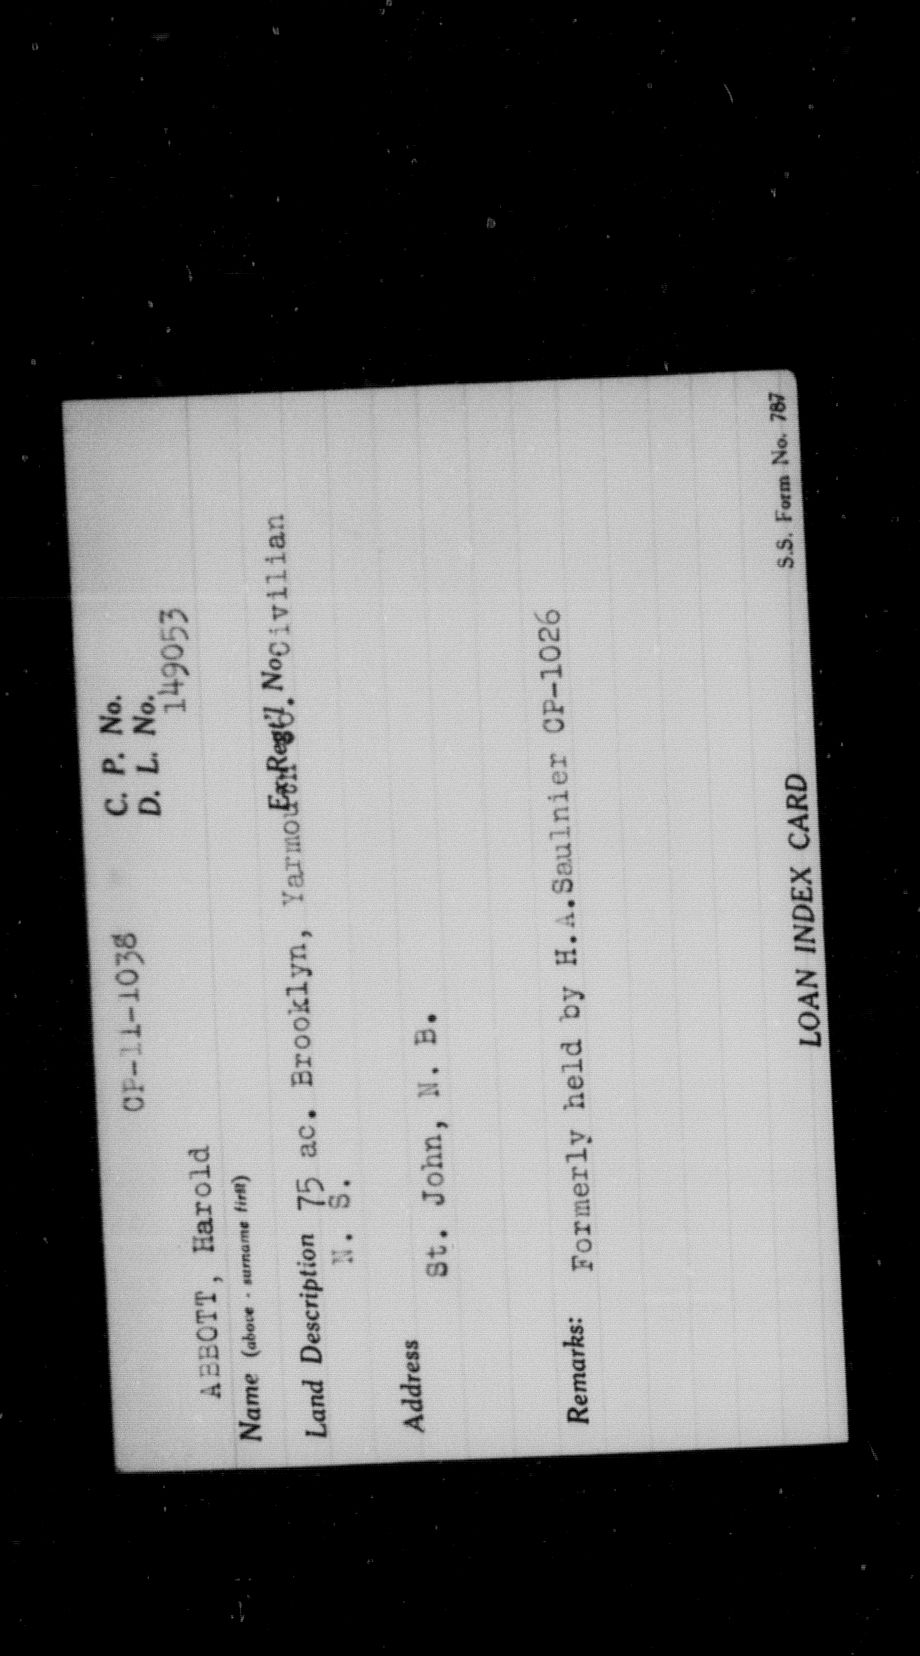 CP-11-1038 C. P. No.
D. L. No.
149053
ABBOTT, Harold
Name (above - surname first) Ex Regt'l No. Civilian
Land Description 75 ac. Brooklyn, Yarmouth Co.
N. S.
Address
St. John, N. B.
Remarks: Formerly held by H.A.Saulnier CP-1026
LOAN INDEX CARD S.S. Form No. 787